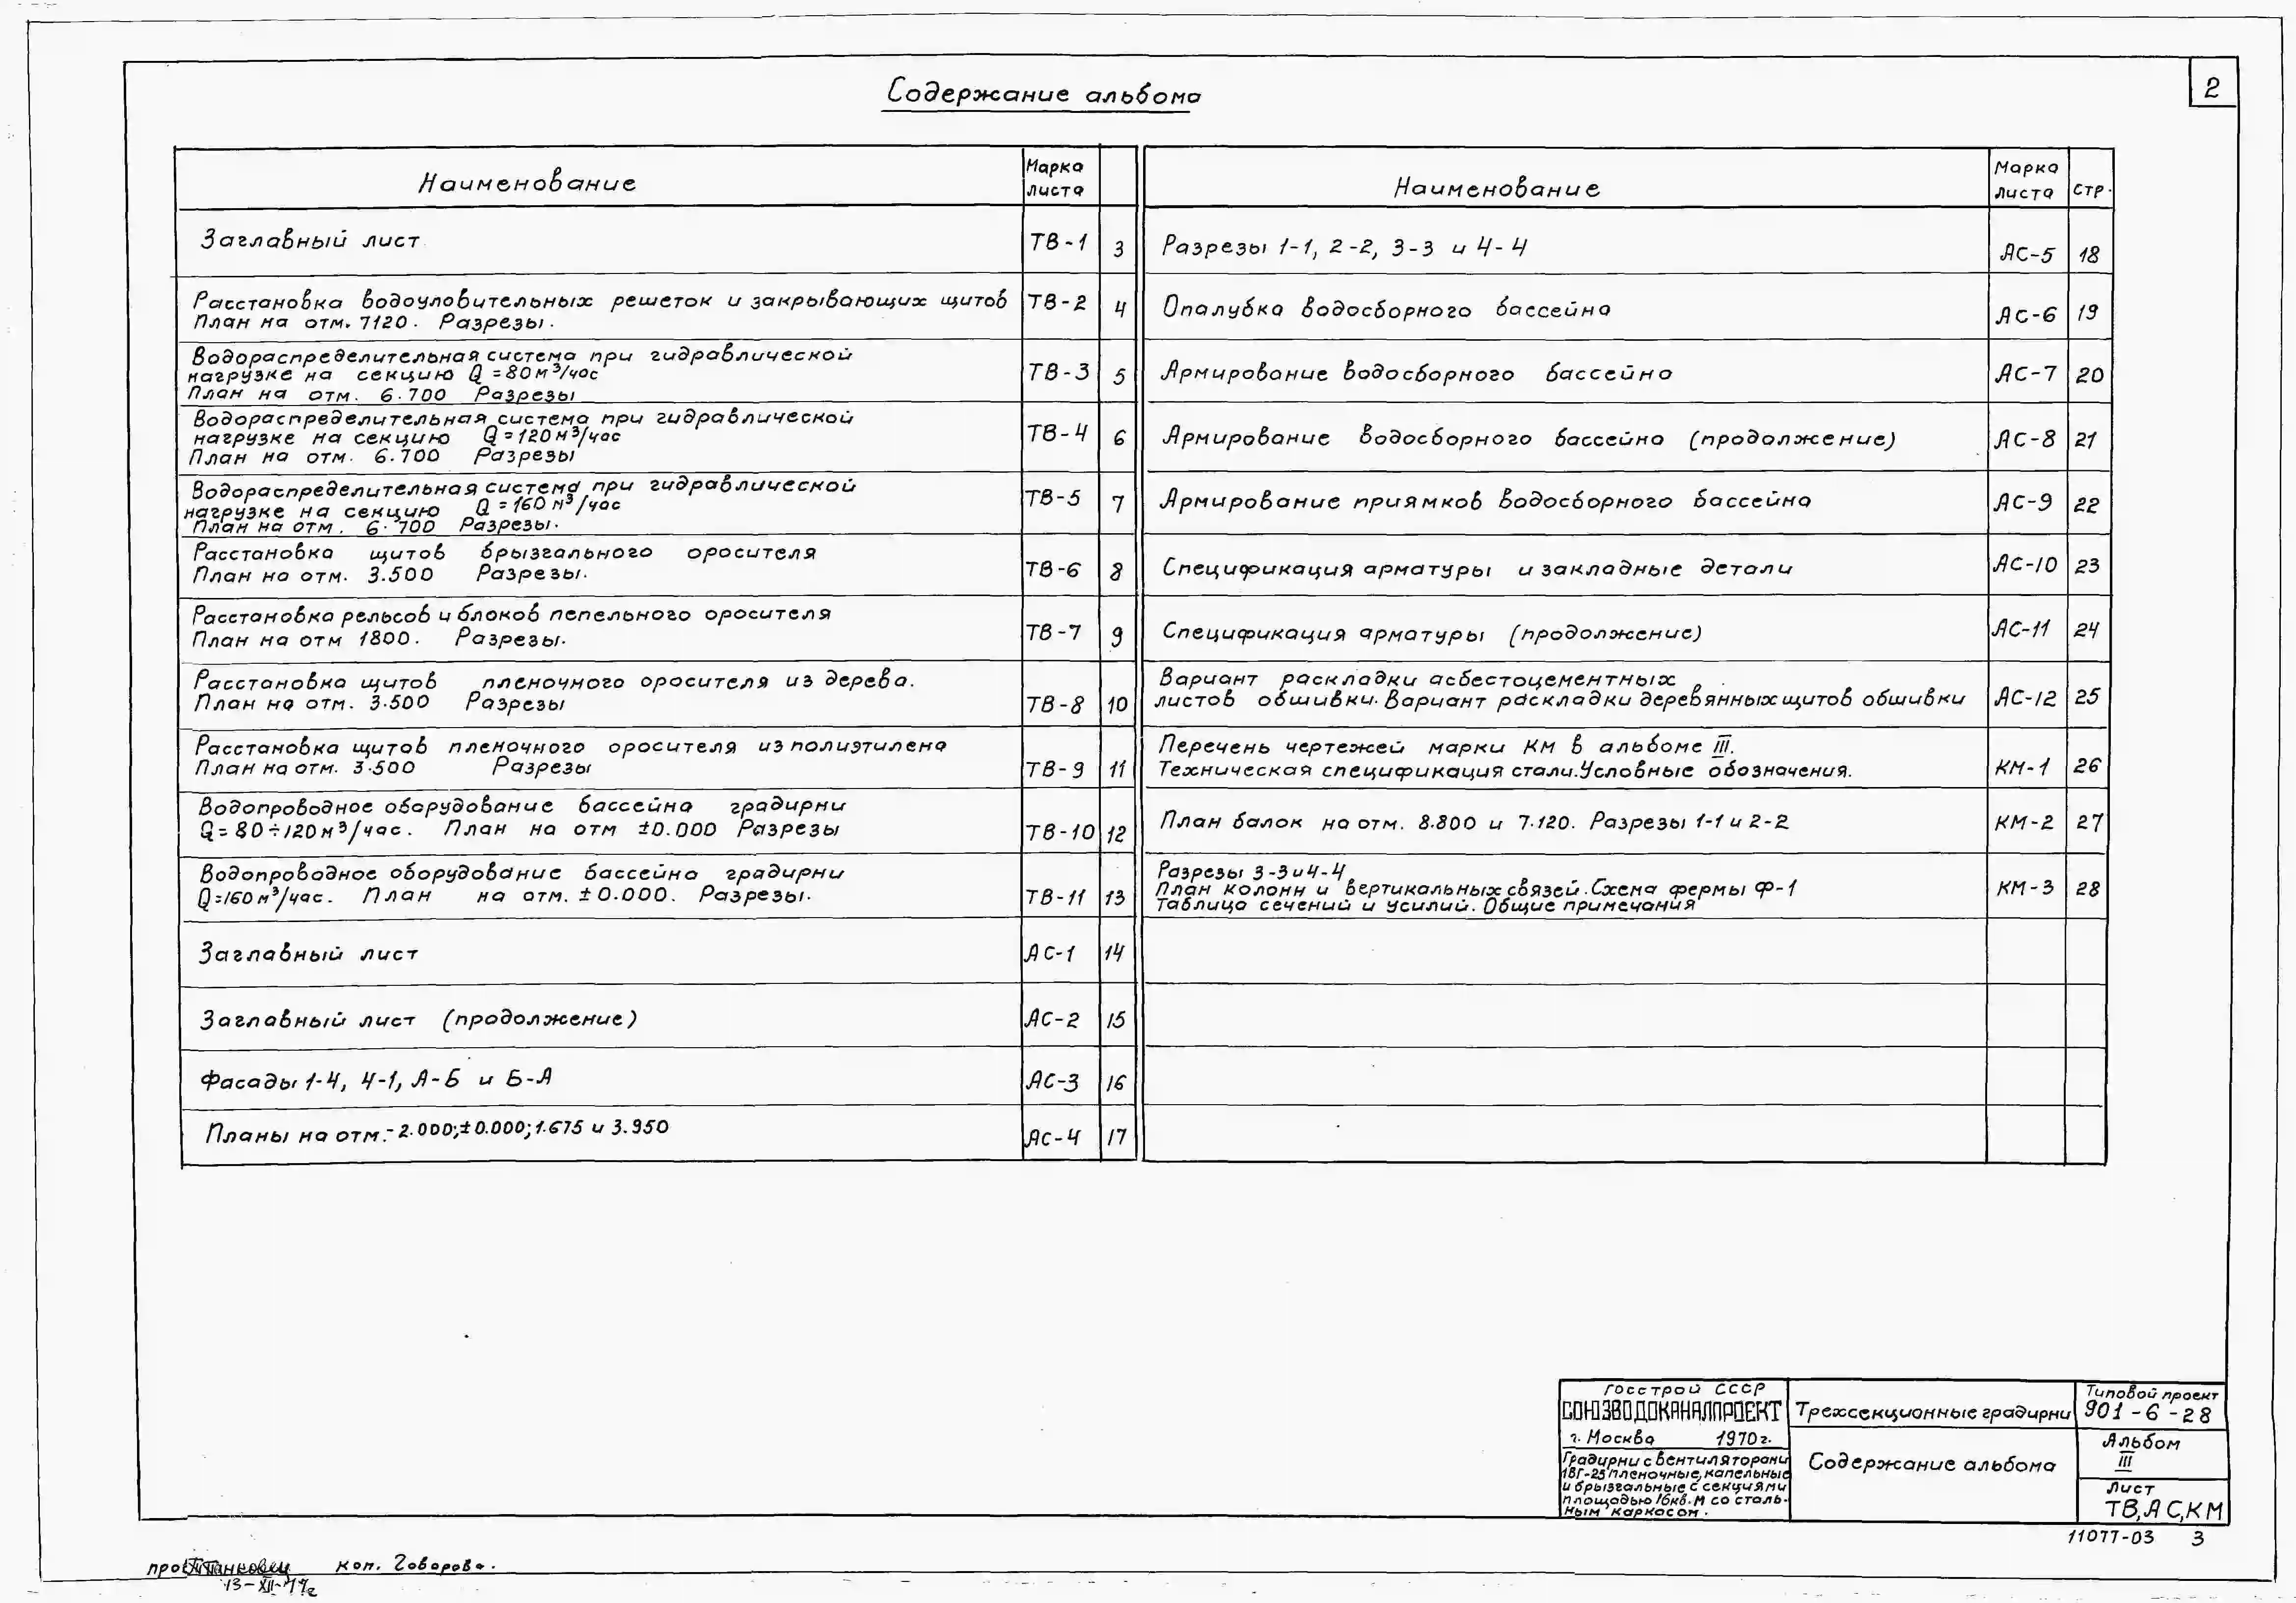 2
Содержание альбома
Наименование
Марка
листа
Заглавный лист ТВ-1 3
Расстановка водоуловительных решеток и закрывающих щитов ТВ-2 4
План на отм. 7120. Разрезы.
Водораспределительная система при гидравлической
нагрузке на секцию Q = 80 м³/час ТВ-3 5
План на отм. 6.700 Разрезы
Водораспределительная система при гидравлической
нагрузке на секцию Q = 120 м³/час ТВ-4 6
План на отм. 6.700 Разрезы
Водораспределительная система при гидравлической
нагрузке на секцию Q = 160 м³/час ТВ-5 7
План на отм. 6.700 Разрезы.
Расстановка щитов брызгального оросителя
План на отм. 3.500 Разрезы. ТВ-6 8
Расстановка рельсов и блоков пепельного оросителя
План на отм 1800. Разрезы. ТВ-7 9
Расстановка щитов пленочного оросителя из дерева.
План на отм. 3.500 Разрезы ТВ-8 10
Расстановка щитов пленочного оросителя из полиэтилена
План на отм. 3.500 Разрезы ТВ-9 11
Водопроводное оборудование бассейна градирни
Q = 80÷120 м³/час. План на отм ±0.000 Разрезы ТВ-10 12
Водопроводное оборудование бассейна градирни
Q=160 м³/час. План на отм. ±0.000. Разрезы. ТВ-11 13
Заглавный лист АС-1 14
Заглавный лист (продолжение) АС-2 15
Фасады 1-4, 4-1, А-Б и Б-А АС-3 16
Планы на отм.-2.000;±0.000;1.675 и 3.950 АС-4 17
Наименование
Марка
листа стр.
Разрезы 1-1, 2-2, 3-3 и 4-4 АС-5 18
Опалубка водосборного бассейна АС-6 19
Армирование водосборного бассейна АС-7 20
Армирование водосборного бассейна (продолжение) АС-8 21
Армирование приямков водосборного бассейна АС-9 22
Спецификация арматуры и закладные детали АС-10 23
Спецификация арматуры (продолжение) АС-11 24
Вариант раскладки асбестоцементных
листов обшивки. Вариант раскладки деревянных щитов обшивки АС-12 25
Перечень чертежей марки КМ в альбоме III.
Техническая спецификация стали. Условные обозначения. КМ-1 26
План балок на отм. 8.800 и 7.120. Разрезы 1-1 и 2-2 КМ-2 27
Разрезы 3-3 и 4-4
План колонн и вертикальных связей. Схема фермы ф-1 КМ-3 28
Таблица сечений и усилий. Общие примечания
Госстрой СССР
СОЮЗВОДОКАНАЛПРОЕКТ
г. Москва 1970г.
Градирни с вентиляторами
1ВГ-25 пленочные, капельные
и брызгальные с секциями
площадью 16кв.м со сталь-
ным каркасом.
Трехсекционные градирни
Содержание альбома
Типовой проект
901-6-28
Альбом
III
Лист
ТВ, АС, КМ
11077-03 3
коп. Говорова.
13-XII-77г